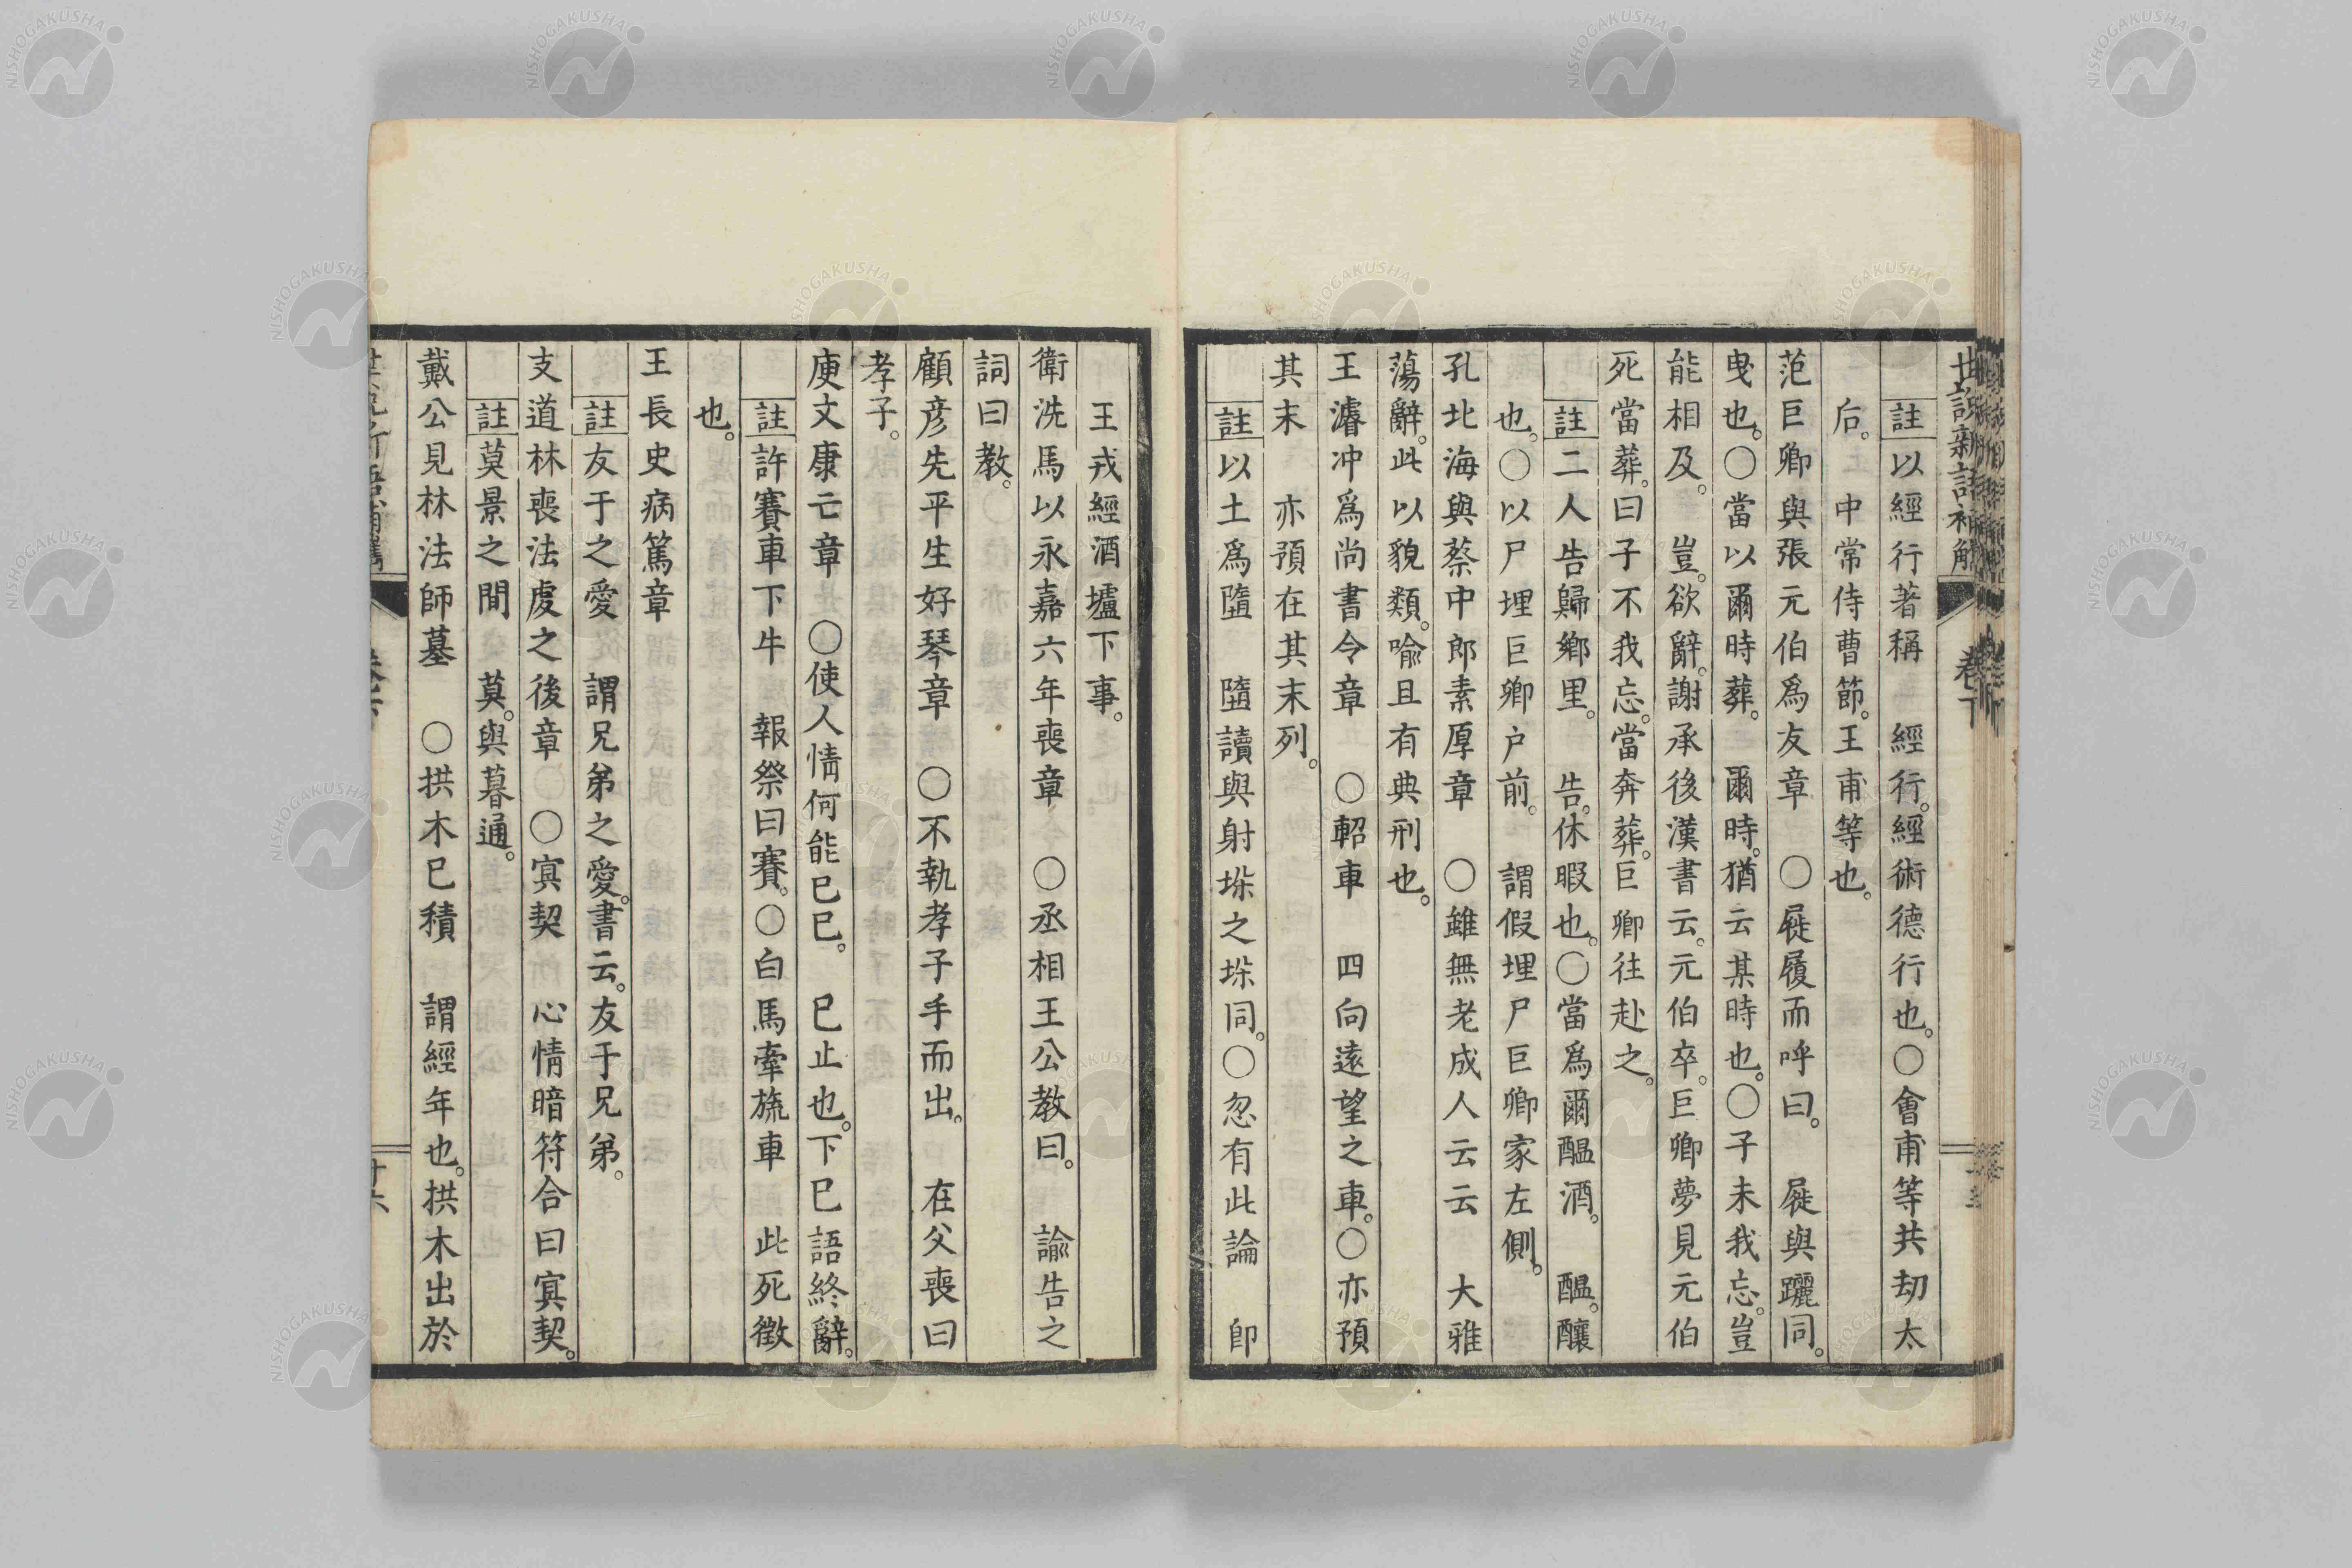 註以經行著稱　經行。經術德行也。○會甫等共劫太
后。　中常侍曹節。王甫等也。
范巨卿與張元伯爲友章　○屣履而呼曰。　屣與躧同。
曳也。○當以爾時葬。　爾時。猶云某時也。○子未我忘。豈
能相及。　豈。欲辭。謝承後漢書云。元伯卒。巨卿夢見元伯
死當葬。曰子不我忘。當奔葬。巨卿往赴之。
註二人告歸鄉里。　告。休暇也。○當爲爾醞酒。　醞。釀
也。○以尸埋巨卿户前。　謂假埋尸巨卿家左側。
孔北海與蔡中郎素厚章　○雖無老成人云云　大雅
蕩辭。此以貌類。喻且有典刑也。
王濬冲爲尚書令章　○軺車　四向遠望之車。○亦預
其末　亦預在其末列。
註以土爲墮　墮讀與射垜之垜同。○忽有此論　卽
王戎經酒壚下事。
衛洗馬以永嘉六年喪章　○丞相王公教曰。　諭告之
詞曰教。
顧彦先平生好琴章　○不執孝子手而出。　在父喪曰
孝子。
庾文康亡章　○使人情何能已已。　已止也。下已語終辭。
註許賽車下牛　報祭曰賽。○白馬牽旒車　此死徵
也。
王長史病篤章
註友于之愛　謂兄弟之愛。書云。友于兄弟。
支道林喪法虔之後章　○冥契　心情暗符合曰冥契。
註莫景之間　莫。與暮通。
戴公見林法師墓　○拱木已積　謂經年也。拱木出於